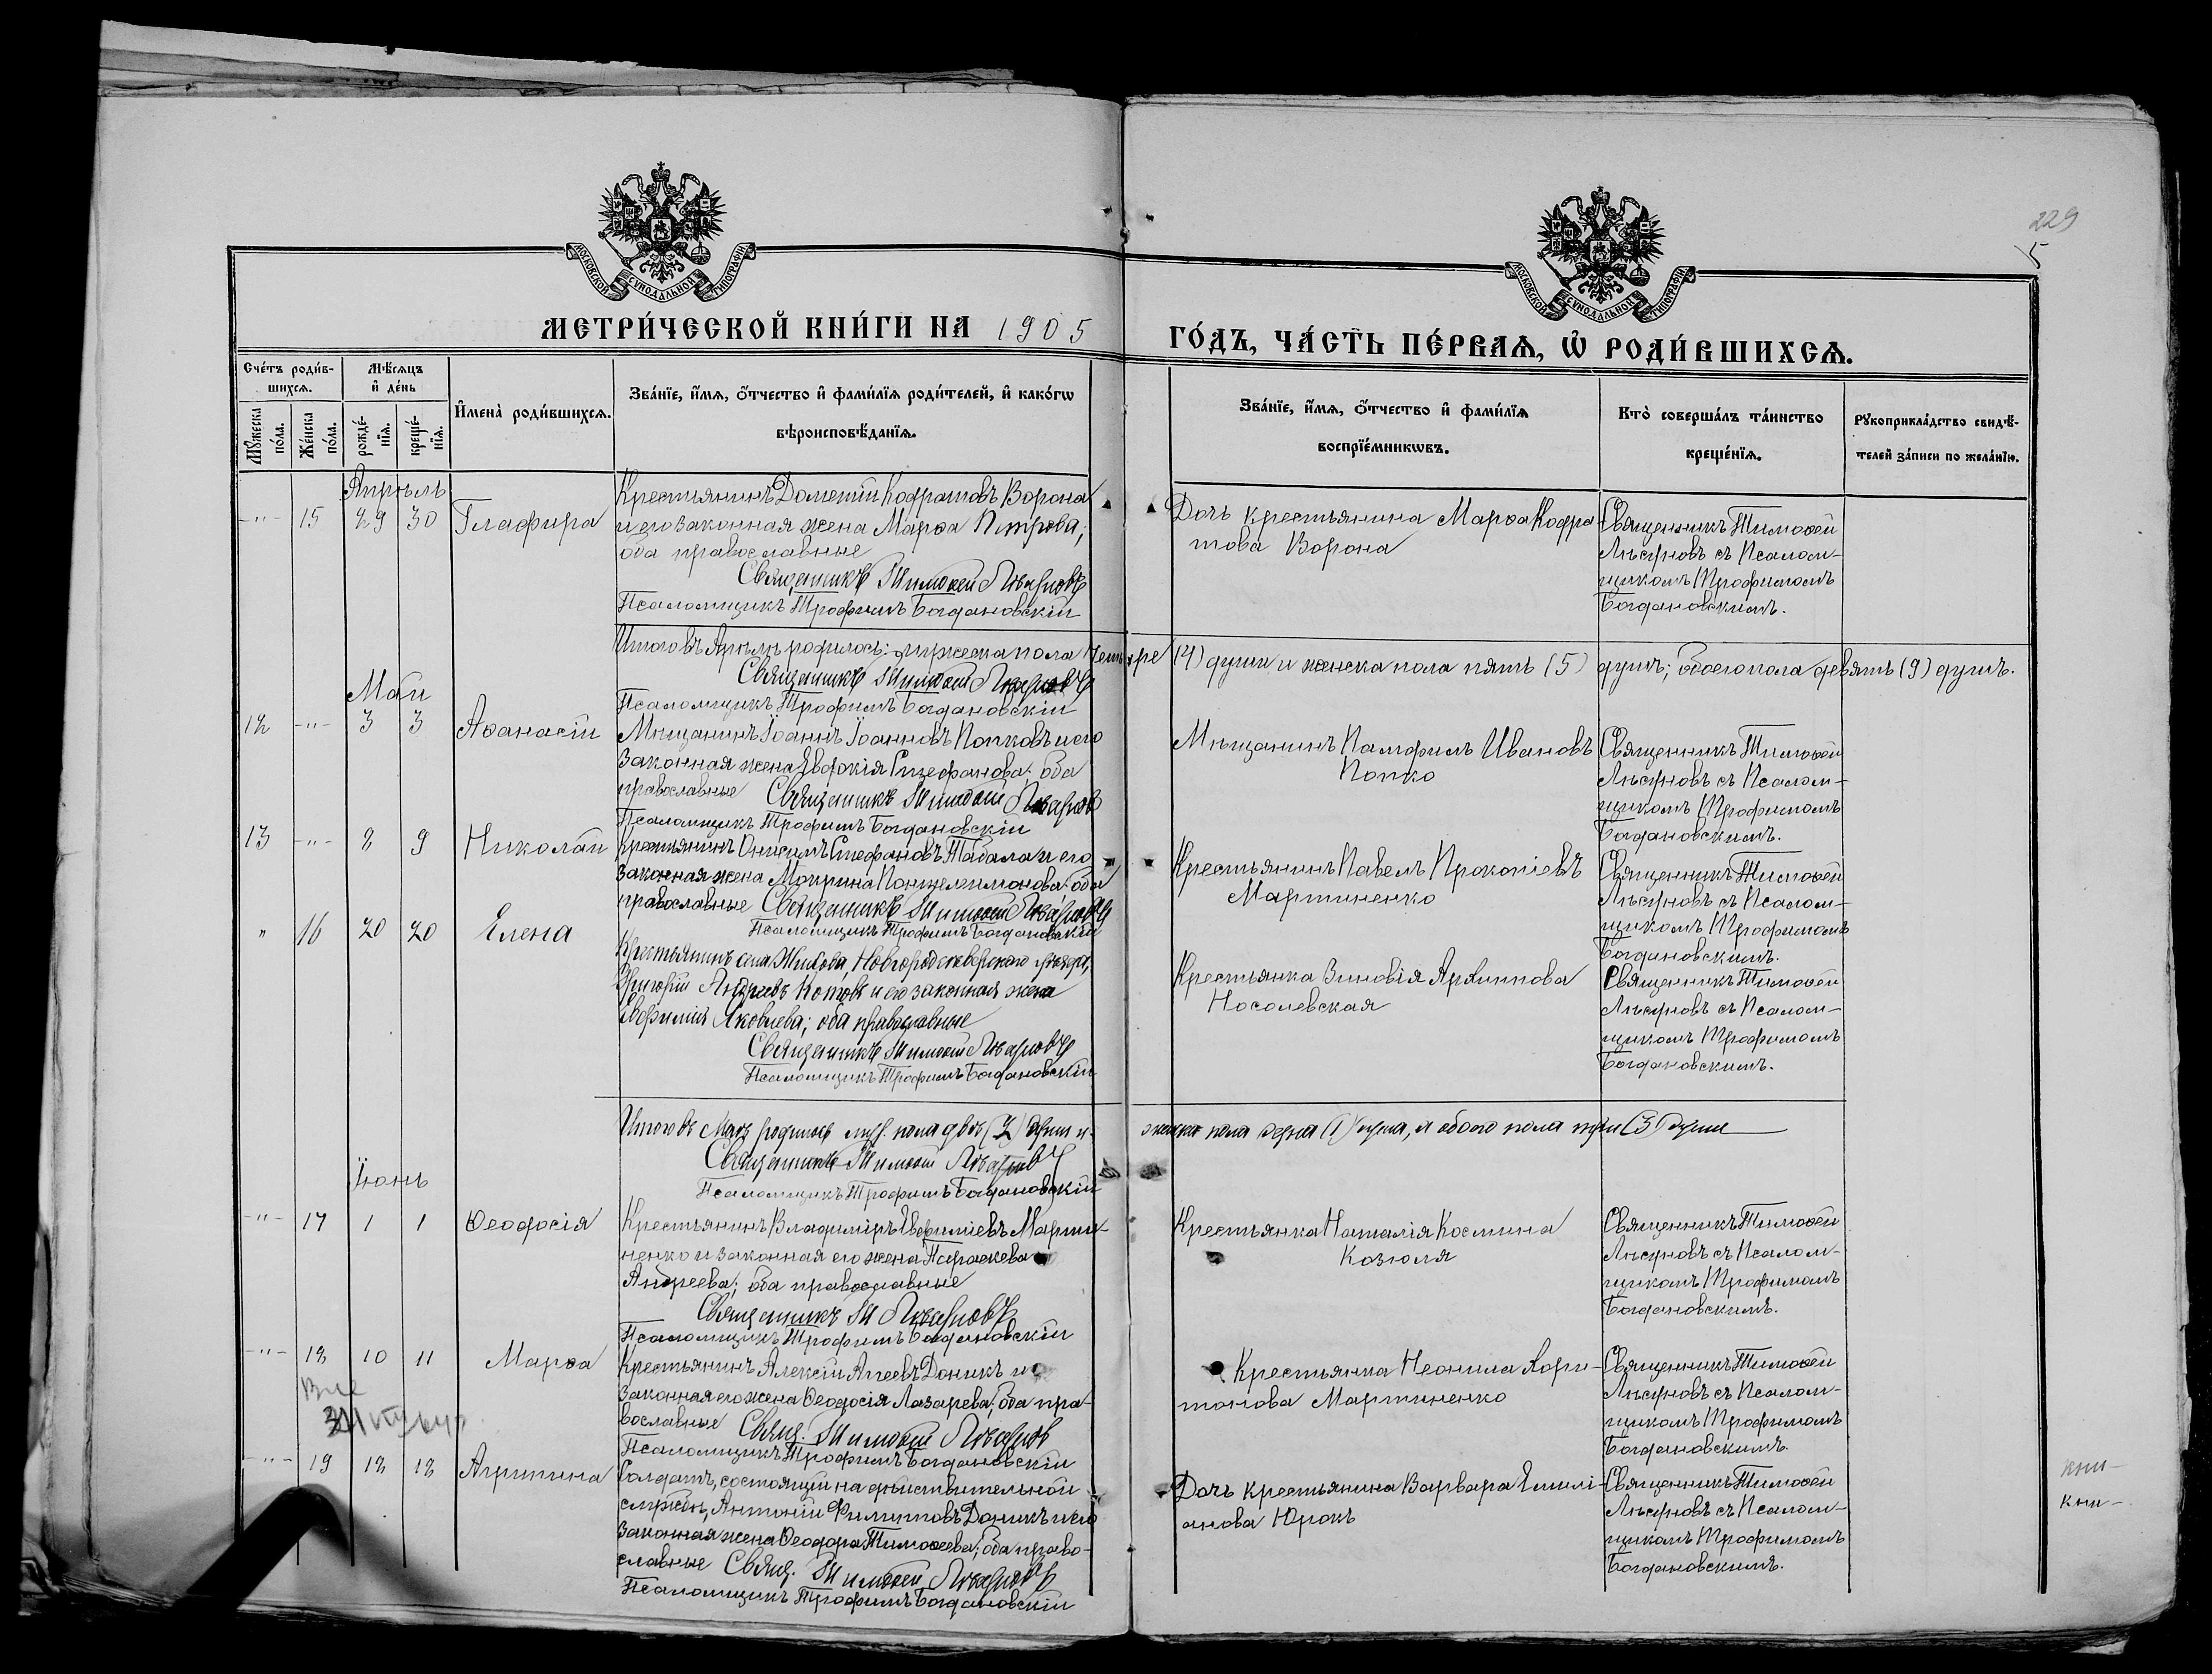 229
5
МОСКОВСКОЙ СУНОДАЛЬНОЙ ТИПОГРАФІИ
МОСКОВСКОЙ СУНОДАЛЬНОЙ ТИПОГРАФІИ
МЕТРИ́ЧЕСКОЙ КНИ́ГИ НА 1905
ГО́ДЪ, ЧА́СТЬ ПЕ́РВАѦ, Ѡ РОДИ́ВШИХСѦ.
Сче́тъ роди́в-
шихсѧ.
Мѣсѧцъ
и де́нь
Мꙋжеска
по́ла.
Же́нска
по́ла.
рожде́-
нїѧ.
креще́-
нїѧ.
Имена̀ роди́вшихсѧ.
Зва́нїе, и́мѧ, о́тчество и фами́лїѧ роди́телей, и како́гѡ
вѣроисповѣ́данїѧ.
Зва́нїе, и́мѧ, о́тчество и фами́лїѧ
воспрїе́мникѡвъ.
Кто̀ соверша́лъ та́инство
креще́нїѧ.
Рꙋкоприкла́дство свидѣ́-
телей за́писи по жела́нїю.
Апрѣль
-"- 15 29 30 Глафира
Крестьянинъ Дометій Кодратовъ Ворона
и его законная жена Марѳа Петрова;
оба православные
Священникъ Тимоѳей Лѣсуновъ
Псаломщикъ Трофимъ Богдановскій
Дочь крестьянина Марѳа Кодра-
това Ворона
Священникъ Тимоѳей
Лѣсуновъ съ Псалом-
щикомъ Трофимомъ
Богдановскимъ.
Итого въ Апрѣлѣ родилось: мужеска пола четыре (4) души и женска пола пять (5) душъ; обоего пола девять (9) душъ.
Священникъ Тимоѳей Лѣсуновъ
Псаломщикъ Трофимъ Богдановскій
Май
12 -"- 3 3 Аѳанасій
Мѣщанинъ Іоаннъ Іоанновъ Попковъ и его
законная жена Евдокія Стефанова; оба
православные Священникъ Тимоѳей Лѣсуновъ
Псаломщикъ Трофимъ Богдановскій
Мѣщанинъ Памфилъ Ивановъ
Попко
Священникъ Тимоѳей
Лѣсуновъ съ Псалом-
щикомъ Трофимомъ
Богдановскимъ.
13 -"- 8 9 Николай
Крестьянинъ Онисимъ Стефановъ Табала и его
законная жена Мокрина Понтелеимонова; оба
православные Священникъ Тимоѳей Лѣсуновъ
Псаломщикъ Трофимъ Богдановскій
Крестьянинъ Павелъ Прокопіевъ
Мартиненко
Священникъ Тимоѳей
Лѣсуновъ съ Псалом-
щикомъ Трофимомъ
Богдановскимъ.
" 16 20 20 Елена
Крестьянинъ села Жихова, Новгородсѣверскаго уѣзда,
Григорій Андреевъ Котовъ и его законная жена
Евфимія Яковлева; оба православные
Священникъ Тимоѳей Лѣсуновъ
Псаломщикъ Трофимъ Богдановскій
Крестьянка Зиновія Архиппова
Носолевская
Священникъ Тимоѳей
Лѣсуновъ съ Псалом-
щикомъ Трофимомъ
Богдановскимъ.
Итого въ Маѣ родилось муж. пола двѣ (2) души и женска пола одна (1) душа, а обоего пола три (3) души
Священникъ Тимоѳей Лѣсуновъ
Псаломщикъ Трофимъ Богдановскій
Іюнь
-"- 17 1 1 Ѳеодосія
Крестьянинъ Владиміръ Евфиміевъ Марти-
ненко и законная его жена Параскева
Андреева; оба православные
Священникъ Т Лѣсуновъ
Псаломщикъ Трофимъ Богдановскій
Крестьянка Наталія Костина
Козюля
Священникъ Тимоѳей
Лѣсуновъ съ Псалом-
щикомъ Трофимомъ
Богдановскимъ.
-"- 18 10 11 Марѳа
Крестьянинъ Алексій Агеевъ Доникъ и
законная его жена Ѳеодосія Лазарева; оба пра-
вославные Свящ. Тимоѳей Лѣсуновъ
Псаломщикъ Трофимъ Богдановскій
Крестьянка Неонила Хари-
тонова Мартиненко
Священникъ Тимоѳей
Лѣсуновъ съ Псалом-
щикомъ Трофимомъ
Богдановскимъ.
-"- 19 12 12 Агрипина
Солдатъ, состоящій на дѣйствительной
службѣ, Антоній Филиповъ Доникъ и его
законная жена Ѳеодора Тимоѳеева; оба право-
славные Свящ. Тимоѳей Лѣсуновъ
Псаломщикъ Трофимъ Богдановскій
Дочь крестьянина Варвара Емилі-
анова Юрокъ
Священникъ Тимоѳей
Лѣсуновъ съ Псалом-
щикомъ Трофимомъ
Богдановскимъ.